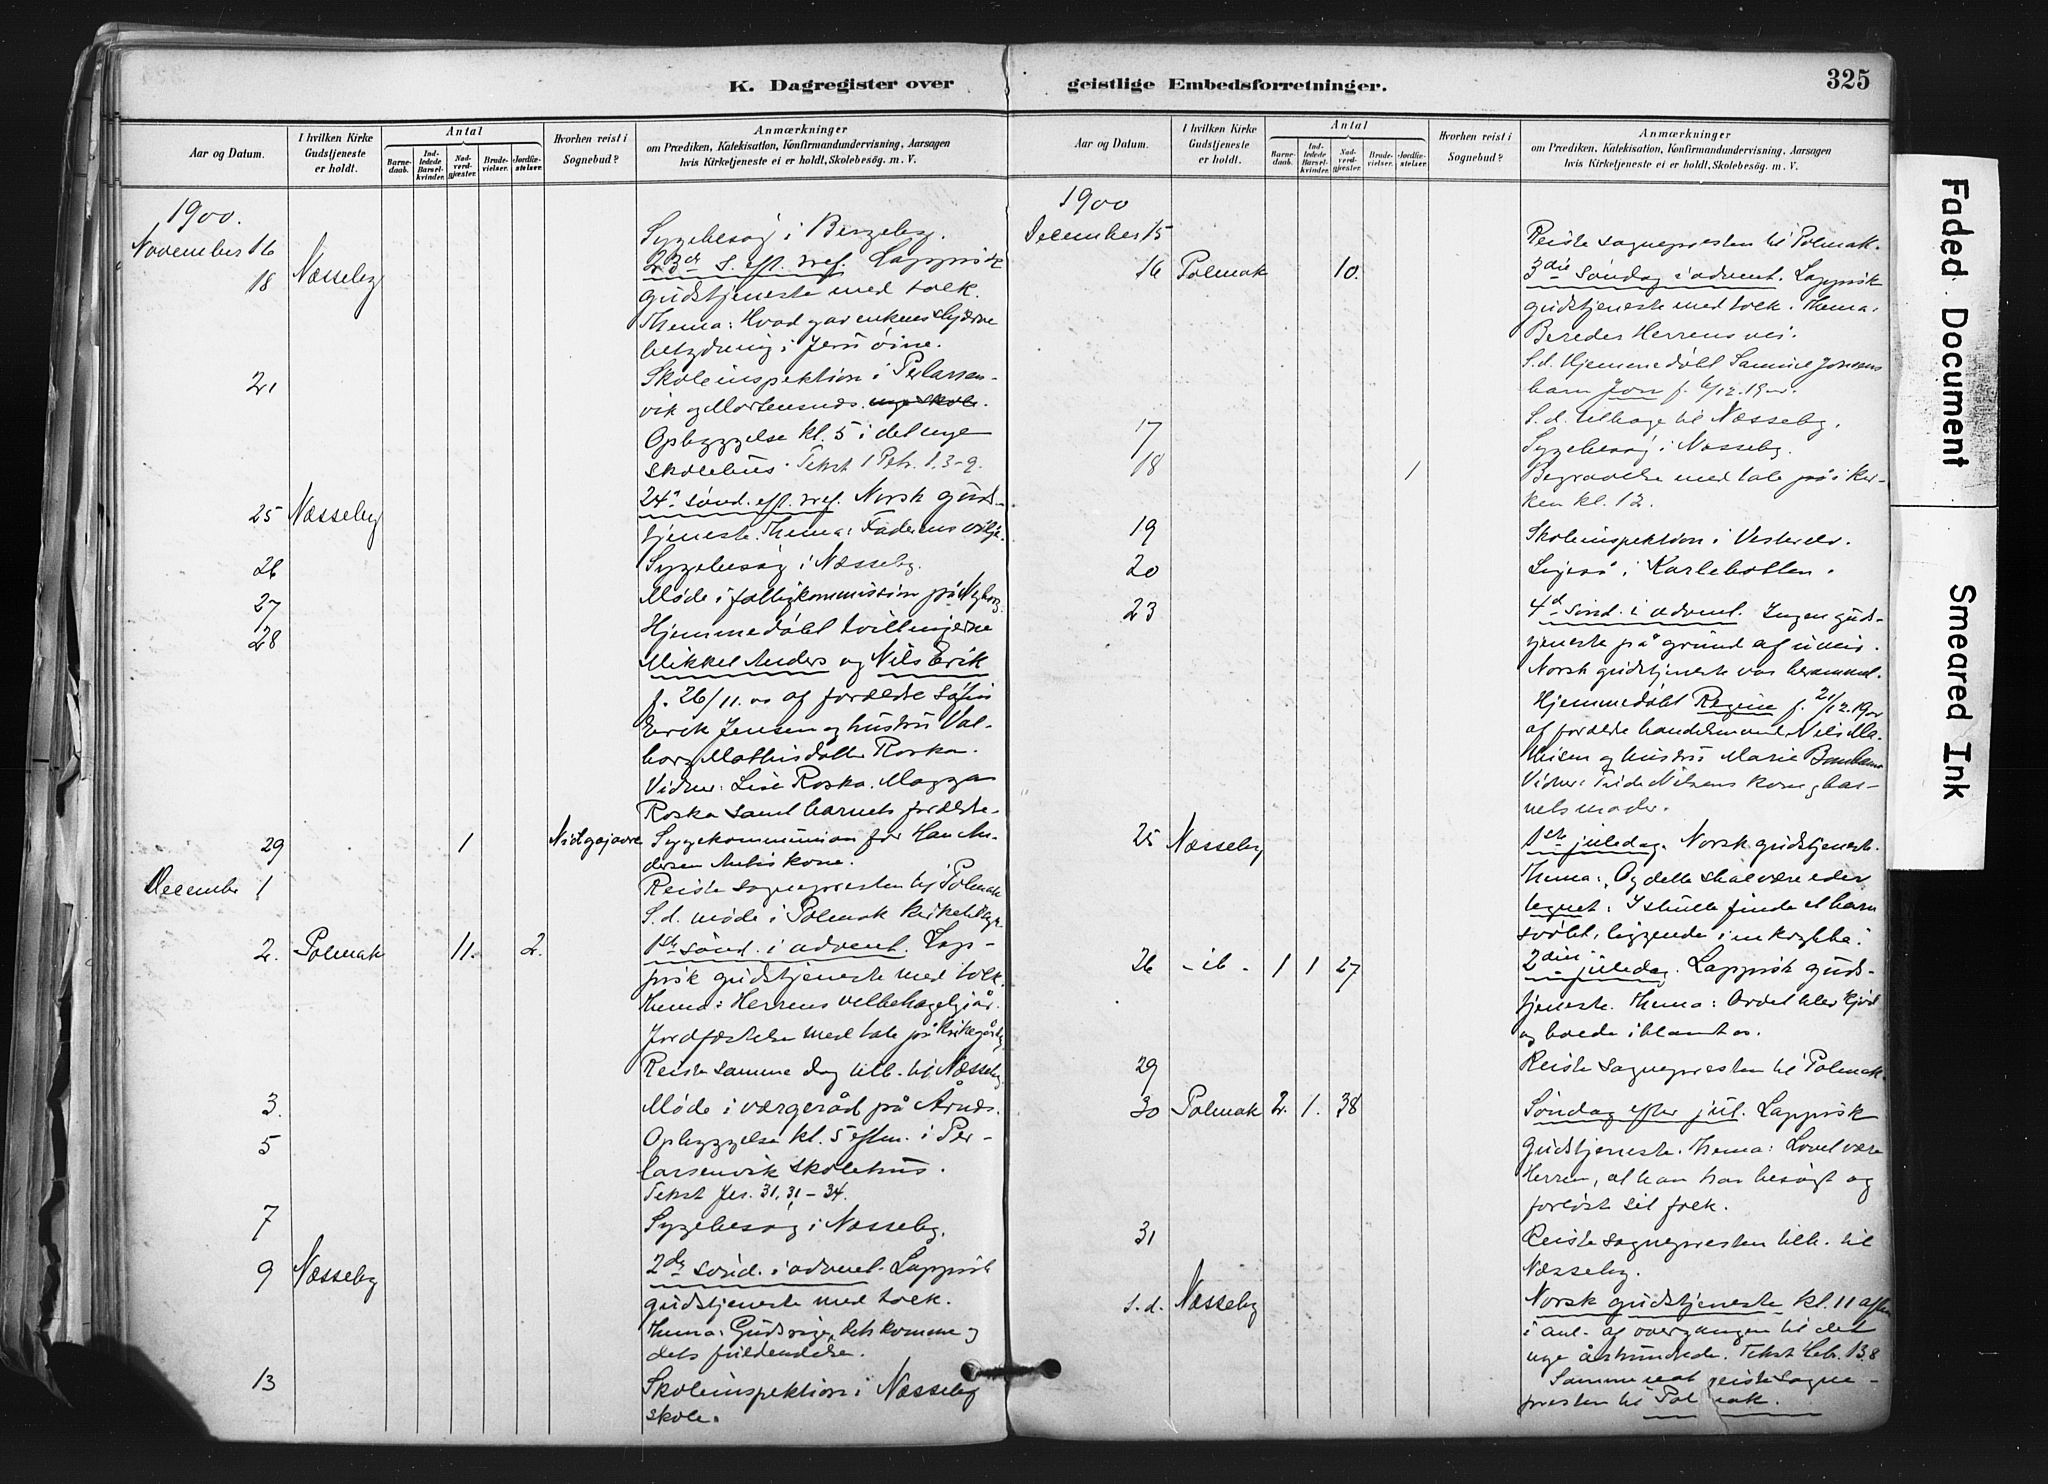 K. Dagregister over
geistlige Embedsforretninger.
325
Aar og Datum.
I hvilken Kirke Gudstjeneste er holdt.
Antal
Barnedaab.
Indledede Barselkvinder.
Nadverdgjæster.
Brudevielser.
Jordfæstelser.
Hvorhen reist i Sognebud?
Anmærkninger
om Prædiken, Katekisation, Konfirmandundervisning, Aarsagen
hvis Kirketjeneste ei er holdt, Skolebesøg. m. V.
1900.
November 16 Sygebesøg i Bergeby.
18 Næsseby 23de S. eft. tref. Lappisk
gudstjeneste med tolk.
Thema: Hvad gav enkens skjærve
betydning i Jesu øine.
21 Skoleinspektion i Perlarsen-
vik og Mortensnes. nye skole.
Opbyggelse kl. 5 i det nye
skolehus. Tekst 1 Petr. 1,3-9.
25 Næsseby 24de sønd. eft. tref. Norsk guds-
tjeneste. Thema: Faderens vilje.
26 Sygebesøg i Næsseby.
27 Møde i fattigkommission på Nyborg.
28 Hjemmedøbt tvillingerne
Mikkel Anders og Nils Erik
f. 26/11.00 af forældre
Erik Jensen og hustru Val-
borg Mathisdatter Roska.
Vidner: Lise Roska, Magga
Roska samt barnets forældre.
29 1 Nidgojavre Sygekommunion for Han An-
dersen kone.
December 1 Reiste sognepresten til Polmak
S.d. møde i Polmak
2. Polmak 11. 2. 1ste sønd. i advent. Lap-
pisk gudstjeneste med tolk.
Thema: Herrens velbehagelig år.
Jordfæstelse med tale på kirkegården
Reiste samme dag tilb. til Næsseby.
3. Møde i værgeråd på
5 Opbyggelse kl. 5 eftm. i Per-
larsenvik skolehus.
Tekst Jer. 31,31-34.
7 Sygebesøg i Næsseby.
9 Næsseby 2den sønd. i advent. Lappisk
gudstjeneste med tolk.
Thema: Guds rige, dets komme og
dets fuldendelse.
13 Skoleinspektion i Næsseby
skole.
Aar og Datum.
I hvilken Kirke Gudstjeneste er holdt.
Antal
Barnedaab.
Indledede Barselkvinder.
Nadverdgjæster.
Brudevielser.
Jordfæstelser.
Hvorhen reist i Sognebud?
Anmærkninger
om Prædiken, Katekisation, Konfirmandundervisning, Aarsagen
hvis Kirketjeneste ei er holdt, Skolebesøg. m. V.
1900
December 15 Reiste sognepresten til Polmak.
16 Polmak 10. 3die søndag i advent. Lappisk
gudstjeneste med tolk. Thema:
Bereder Herrens vei.
S.d. hjemmedøbt Samuel Jonsens
barn Jon f. 6/12.1900.
17 S.d. tilbage til Næsseby.
Sygebesøg i Næsseby.
18 1 Begravelse med tale på i kir-
ken kl. 12.
19 Skoleinspektion i Vesterelv.
20 Ligeså i Karlebotten.
23 4de sønd. i advent. Ingen guds-
tjeneste på grund af uveir.
Norsk gudstjeneste var berammet.
Hjemmedøbt Regine f. 21/12.1900
af forældre handelsmand Nils Ma-
thisen og hustru Marie
Vidner: Nilsens kone og bar-
nets moder.
25 Næsseby 1ste juledag. Norsk gudstjeneste.
Thema: Og dette skal være eder
tegnet: I skulle finde et barn
svøbt, liggende i en krybbe.
26 - ib - 1 1 27 2den juledag. Lappisk guds-
tjeneste. Thema: Ordet blev kjød
og boede iblandt os.
29 Reiste sognepresten til Polmak.
30 Polmak 2. 1. 38 Søndag efter jul. Lappisk
gudstjeneste. Thema: Lovet være
Herren, at han har besøgt og
forløst sit folk.
31 Reiste sognepresten tilb. til
Næsseby.
s.d. Næsseby Norsk gudstjeneste kl. 11 aften
i anl. af overgangen til det
nye århundrede. Tekst Heb. 13,8
Samme nat reiste sogne-
presten til Polmak.
Faded Document
Smeared Ink